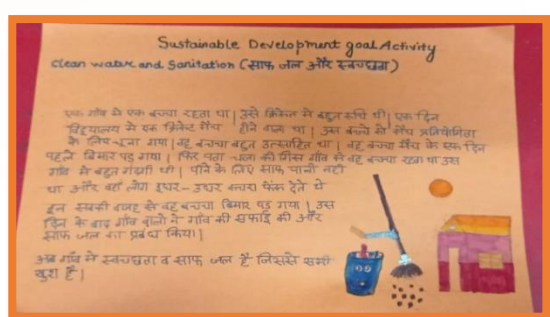 Sustainable Development goal Activity
Clean water and Sanitation (साफ जल और स्वच्छता)
एक गाँव में एक बच्चा रहता था | उसे क्रिकेट में बहुत रूचि थी | एक दिन
विद्यालय में एक क्रिकेट मैच होने वाला था | उस बच्चे को मैच प्रतियोगिता
के लिए चुना गया | वह बच्चा बहुत उत्साहित था | वह बच्चा मैच के एक दिन
पहले बिमार पड़ गया | फिर पता चला की जिस गाँव में वह बच्चा रहता था उस
गाँव में बहुत गंदगी थी | पीने के लिए साफ पानी नही
था और वहाँ लोग इधर-उधर कचरा फेंक देते थे
इन सबकी वजह से वह बच्चा बिमार पड़ गया | उस
दिन के बाद गाँव वालो ने गाँव की सफाई की और
साफ जल का प्रबंध किया |
अब गाँव में स्वच्छता व साफ जल है जिससे सभी
खुश है |